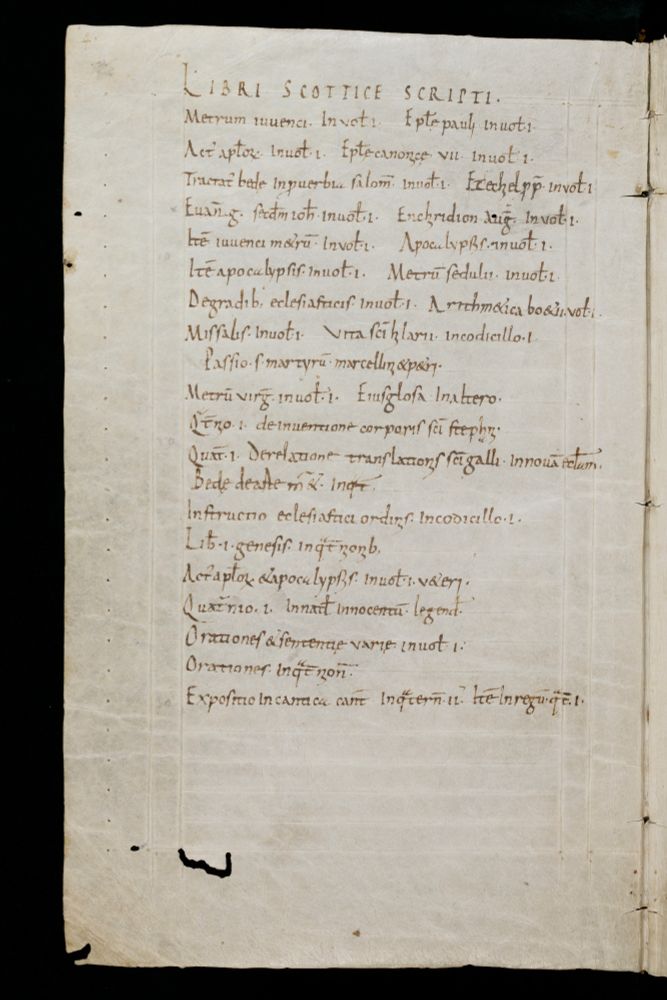 LIBRI SCOTTICE SCRIPTI.
Metrum iuuenci. In uoł. I. Epłę pauli in uoł. I.
Act' apłoꝝ. In uoł. I. Epłę canonicę VII. in uoł. I.
Tractat' bedę in prouerbia salom̄. in uoł. I. Ezechiel pp̄. in uoł. I.
Euang. sēdm ioh̄. in uoł. I. Enchiridion auḡ. In uoł. I.
Itē iuuenci metrū. In uoł. I. Apocalypsis. in uoł. I.
Itē apocalypsis. in uoł. I. Metrū sedulii. in uoł. I.
De gradib; eclesiasticis. in uoł. I. Arithmetica boetii. uoł. I.
Missalis. In uoł. I. Vita sc̄i hilarii. in codicillo. I.
Passio. s. martyrū. marcellini & petri.
Metrū virg̅. in uoł. I. Eius glosa In altero.
Qt̄nio. I. de inuentione corporis sc̄i stephani.
Quat̄. I. De relatione translationis sc̄i galli. in nouā ecłam.
Bede de arte m̄&'. in qt̄.
Instructio eclesiastici ordinis. in codicillo. I.
Lib. I. genesis. in qt̄nionib;
Act' apłoꝝ & apocalypsis. in uoł. I. ueteri.
Quat̄nio. I. In nat̄ł innocentū. legend.
Orationes & sententię uarię. in uoł. I.
Orationes. in qt̄nion̄.
Expositio in cantica cant̄ In qt̄ern̄. II. Itē In regū. qt̄. I.